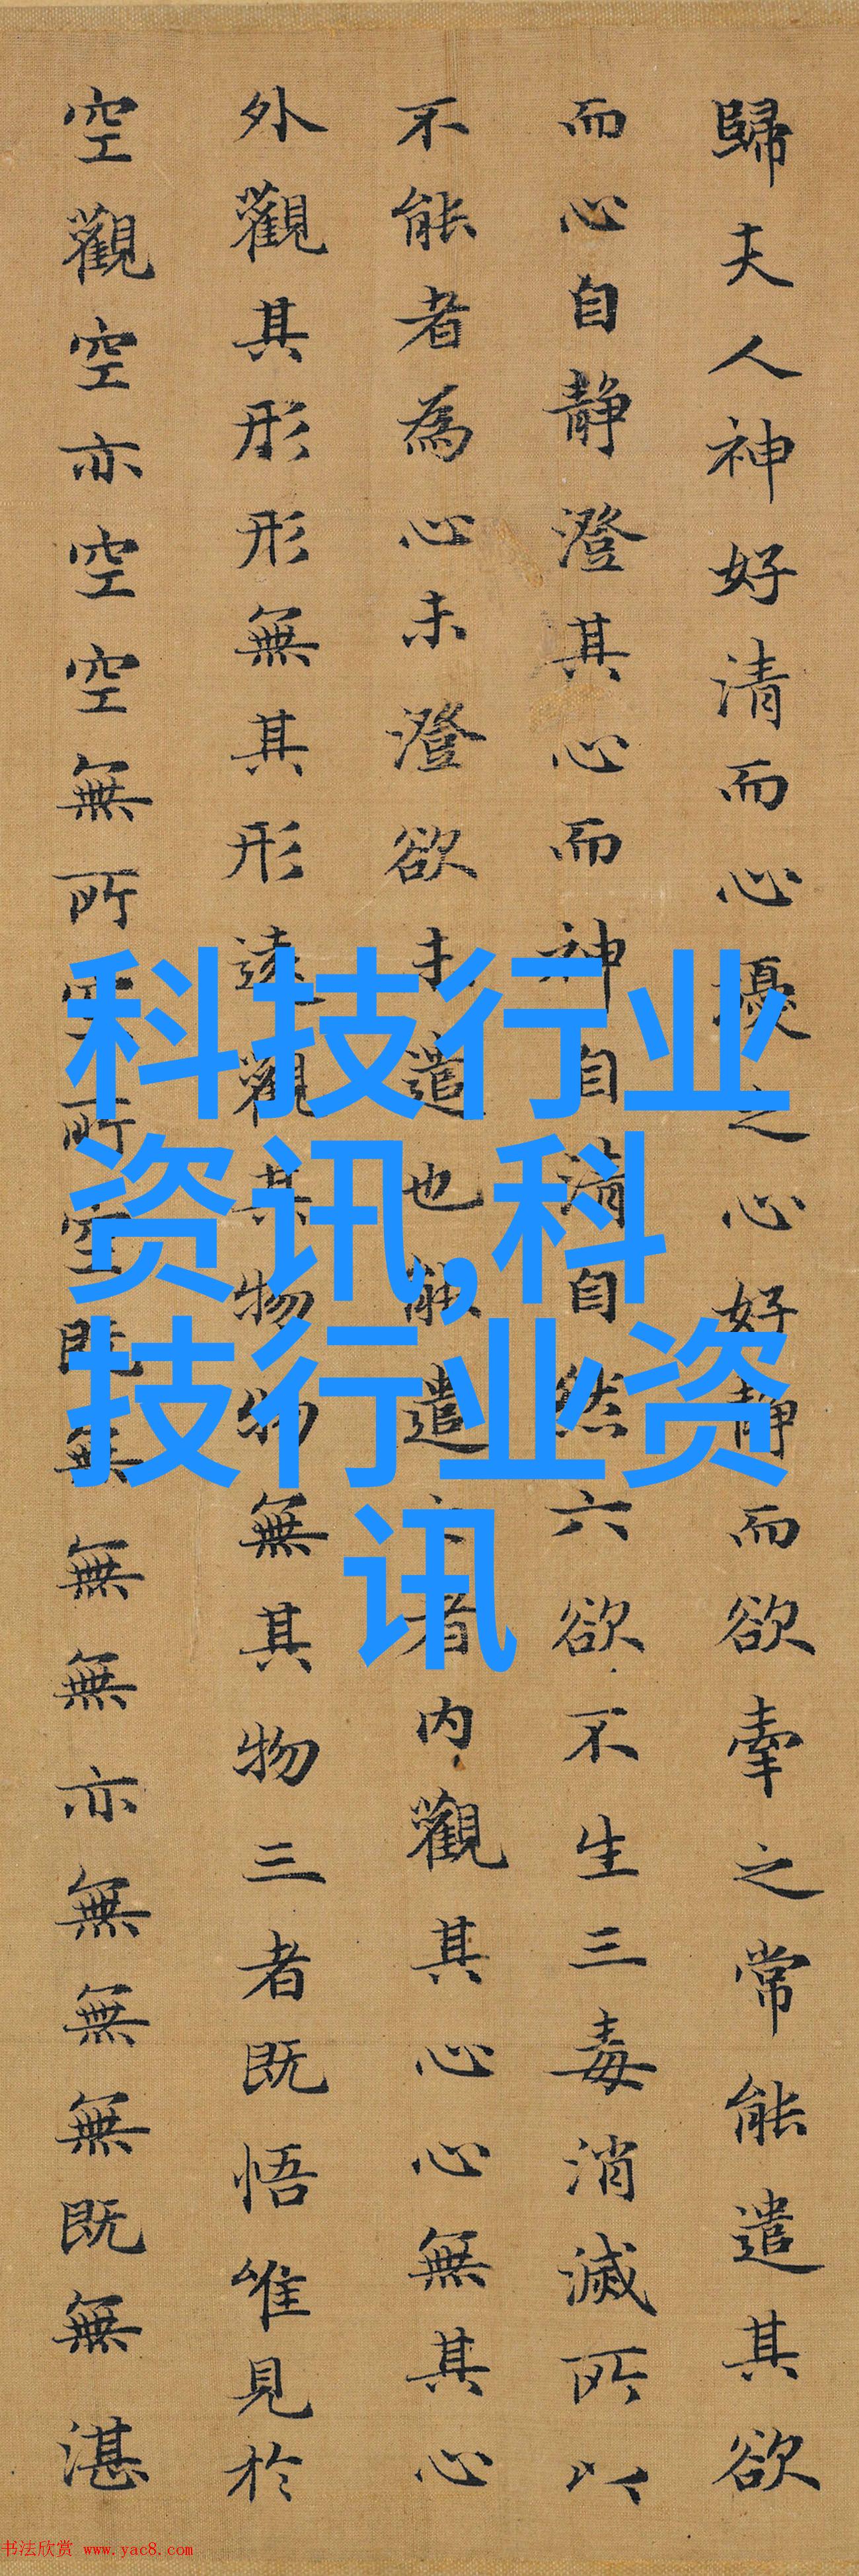 歸夫人神好清而心擾之心好静而欲牽之常能遣其欲
而心自静澄其心而神自清自然六欲不生三毒消滅所以
不能者為心未澄欲未遣也能遣之者内觀其心心無其心
外觀其形形無其形遠觀其物物無其物三者既悟唯見於
空觀空亦空空無所空所空既無無無亦無無無既無湛
科技行业
资讯,科
技行业资
讯
书法欣赏 www.yac8.com